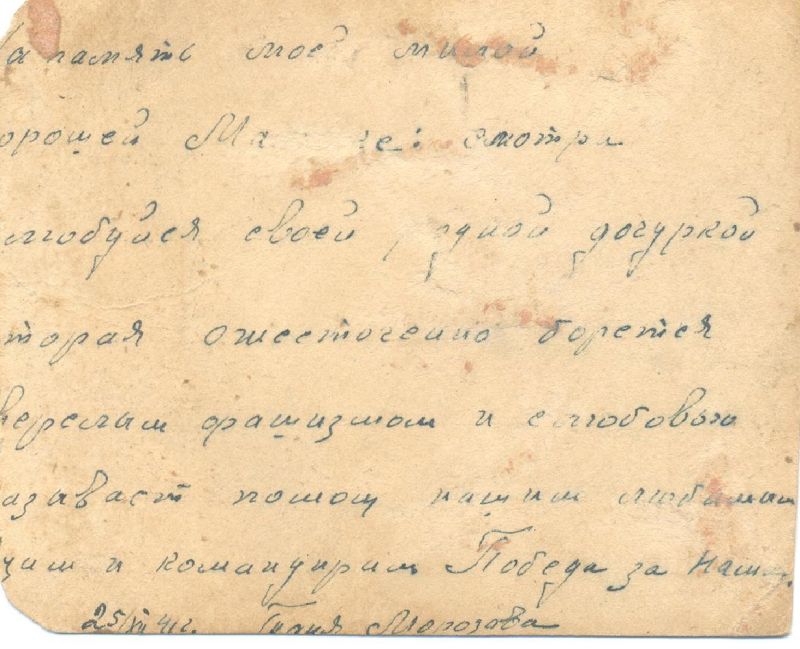 а память моей милой
орошей Ма е: смотри
любуйся своей родной дочуркой
торая ожесточенно борется
верелым фашизмом и слюбовью
азывает помощ нашим любимым
цам и командирам Победа за нами.
25/XII 41г. Морозова